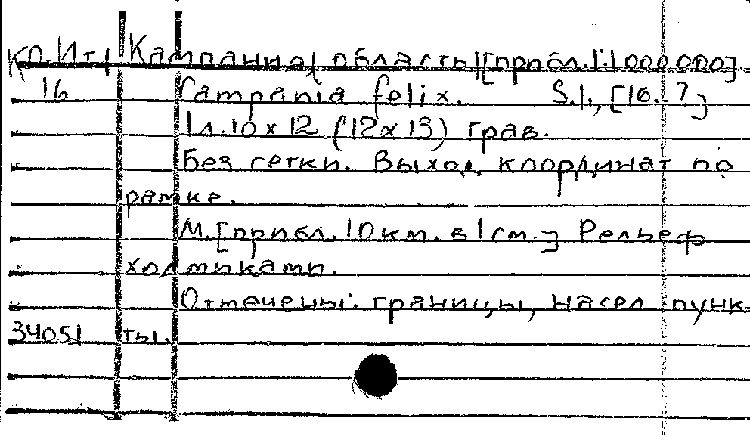 КП.Ит1 Кампания, область [прибл. 1:1000000]
16 Campania felix. S.l., [16..?]
1 л. 10 x 12 (12 x 13) грав.
Без сетки. Выход. координат по
рамке.
М. [прибл. 10 км. в 1 см.] Рельеф
холмиками.
Отмечены: границы, насел. пунк-
34051 ты.